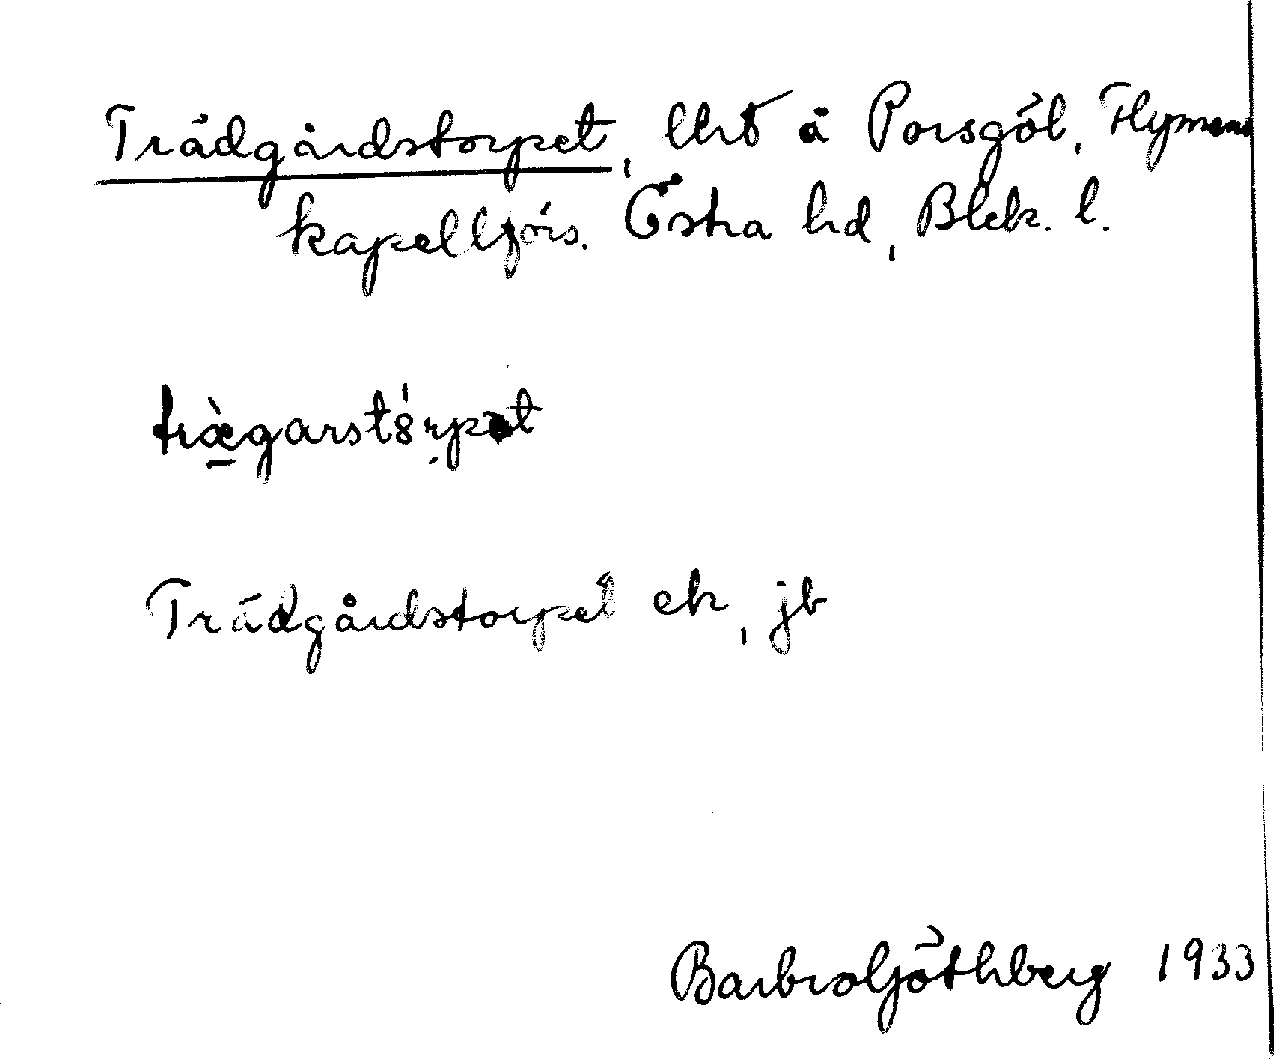 Trädgårdstorpet, lht å Porsgöl, Flymens
kapellförs. Östra hd, Blek. l.
trægarstórpet
Trädgårdstorpet ek, jb
Barbro Göthberg 1933